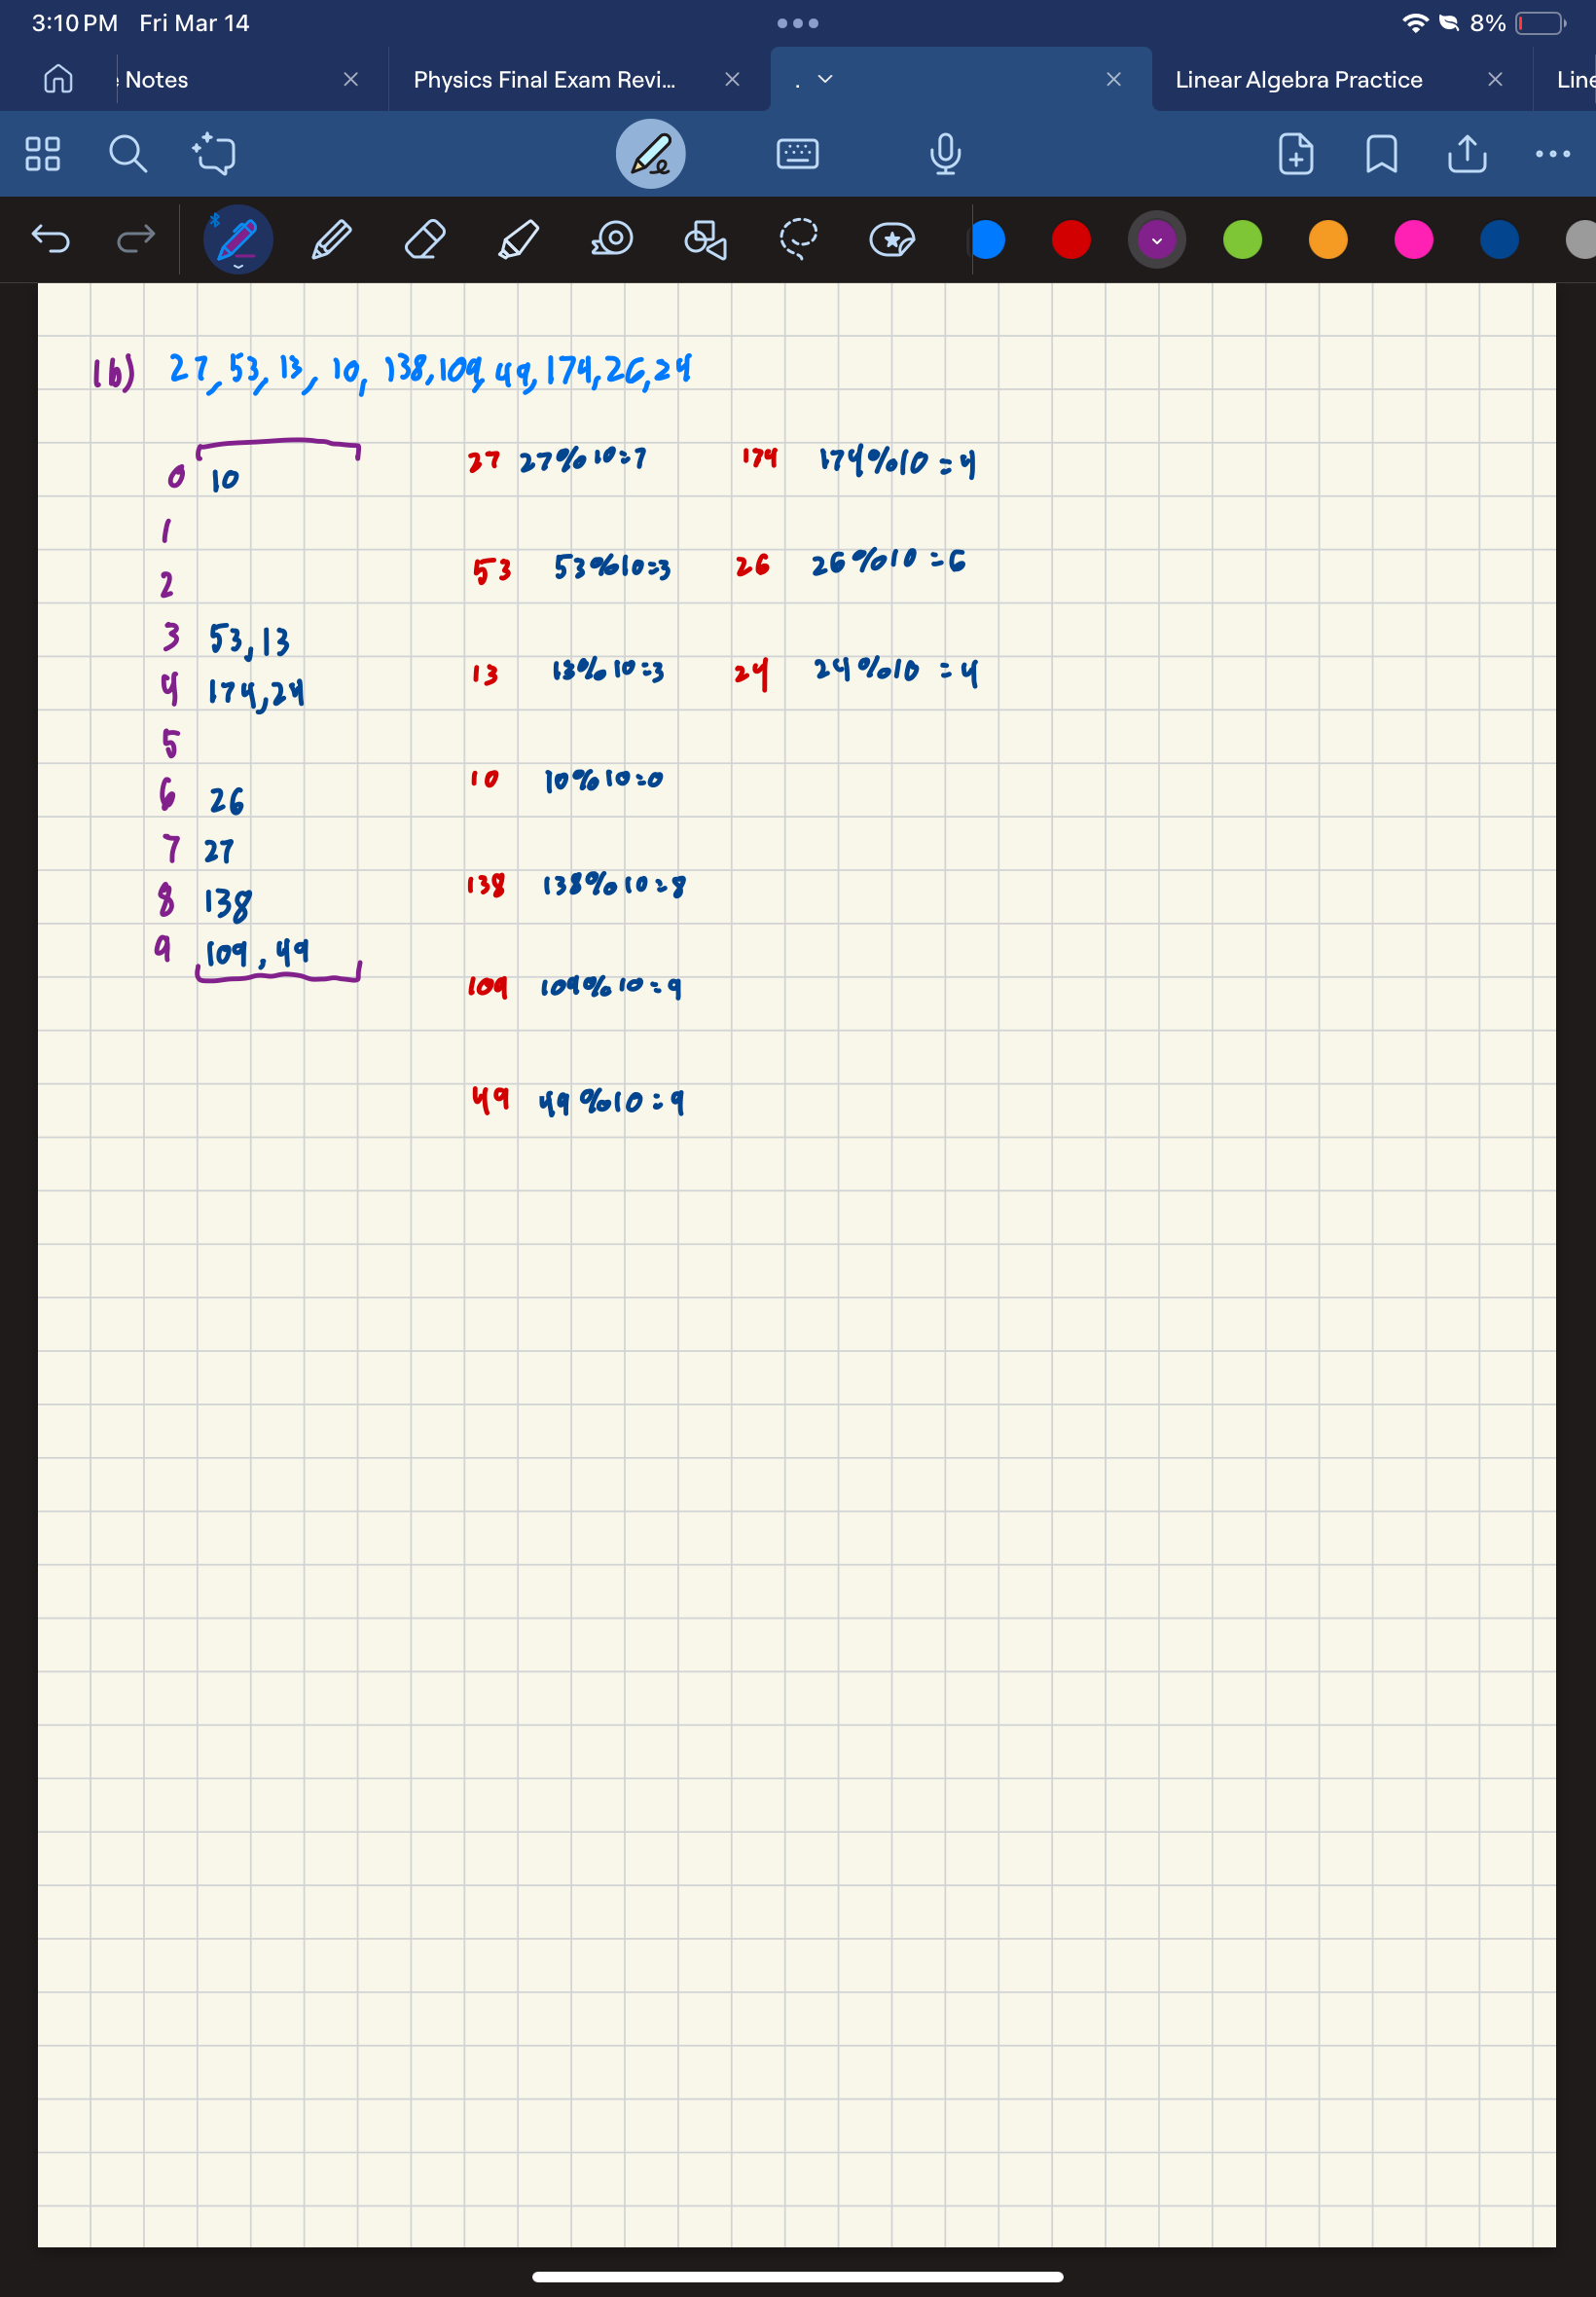 3:10 PM Fri Mar 14
8%
Notes
Physics Final Exam Revi...
.
Linear Algebra Practice
Line
1b) 27, 53, 13, 10, 138, 109, 49, 174, 26, 24
0 10
1
2
3 53, 13
4 174, 24
5
6 26
7 27
8 138
9 109, 49
27 27%10=7
53 53%10=3
13 13%10=3
10 10%10=0
138 138%10=8
109 109%10=9
49 49%10=9
174 174%10=4
26 26%10=6
24 24%10=4